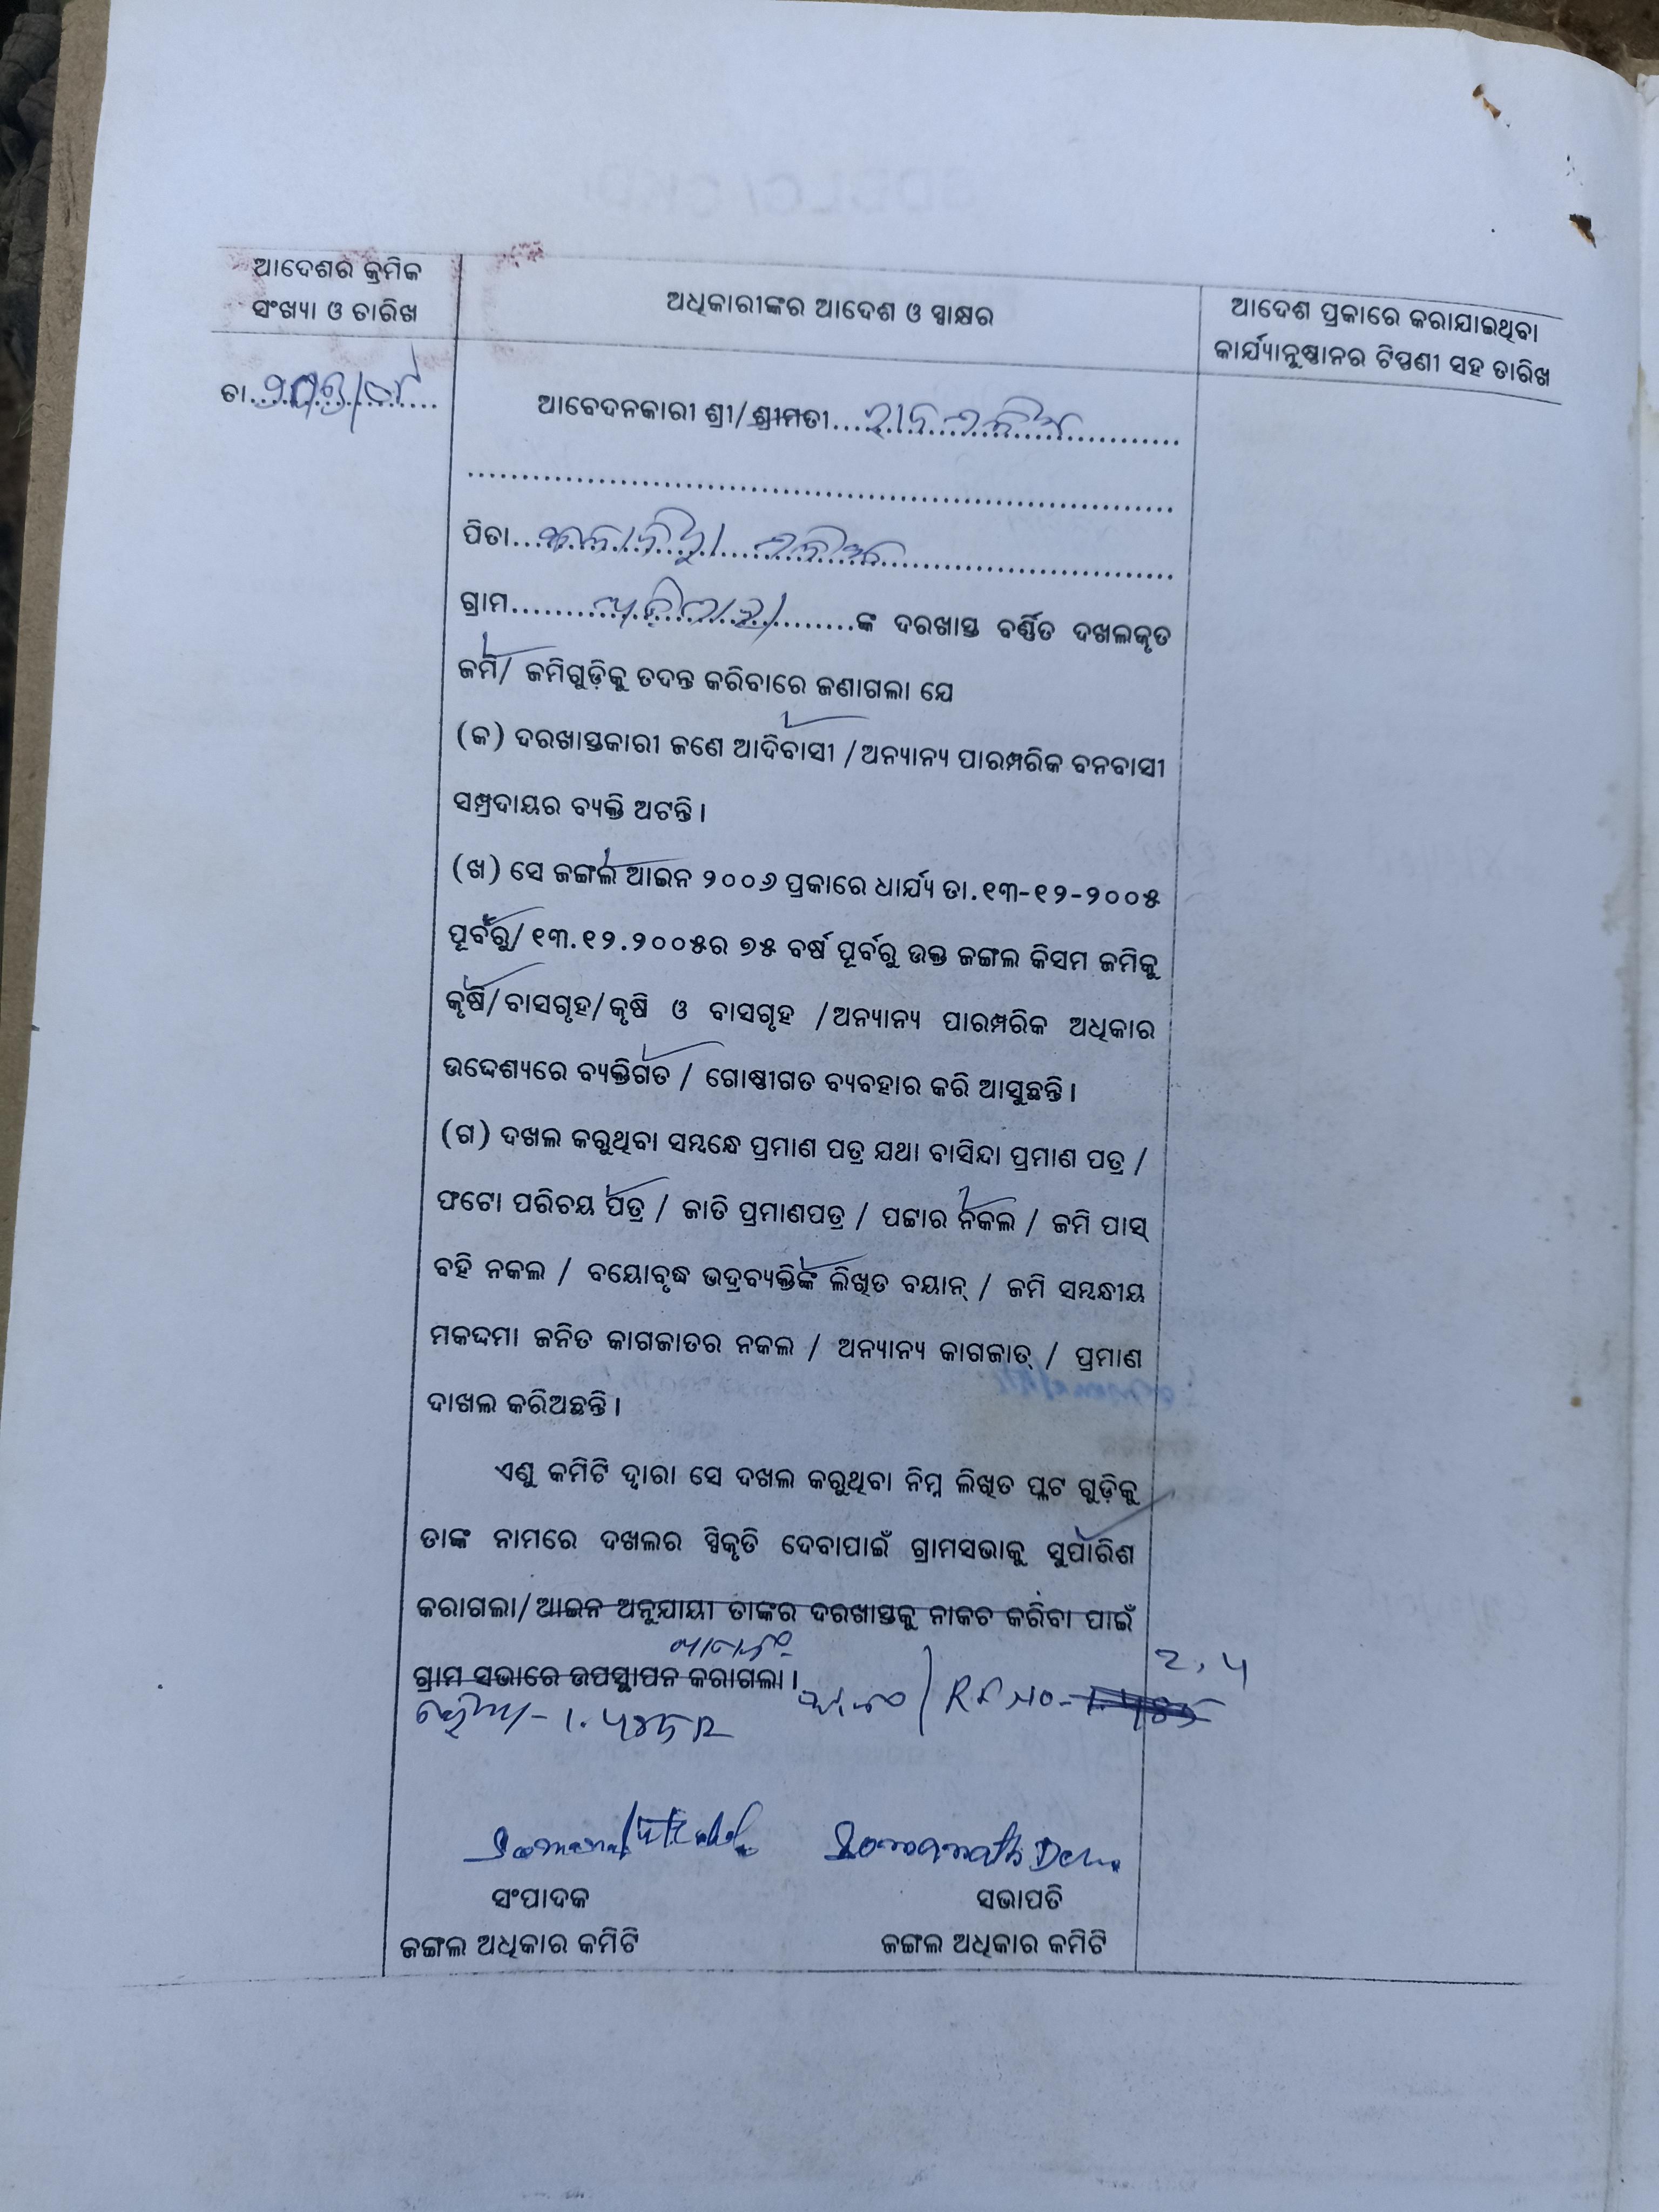 ଆଦେଶର କ୍ରମିକ
ସଂଖ୍ୟା ଓ ତାରିଖ
ଅଧିକାରୀଙ୍କର ଆଦେଶ ଓ ସ୍ୱାକ୍ଷର
ଆଦେଶ ପ୍ରକାରେ କରାଯାଇଥିବା
କାର୍ଯ୍ୟାନୁଷ୍ଠାନର ଟିପ୍ପଣୀ ସହ ତାରିଖ
ତା.
ଆବେଦନକାରୀ ଶ୍ରୀ/ଶ୍ରୀମତୀ
ପିତା
ଗ୍ରାମ ଙ୍କ ଦରଖାସ୍ତ ବର୍ଣ୍ଣିତ ଦଖଲକୃତ
ଜମି/ ଜମିଗୁଡ଼ିକୁ ତଦନ୍ତ କରିବାରେ ଜଣାଗଲା ଯେ
(କ) ଦରଖାସ୍ତକାରୀ ଜଣେ ଆଦିବାସୀ /ଅନ୍ୟାନ୍ୟ ପାରମ୍ପରିକ ବନବାସୀ
ସମ୍ପ୍ରଦାୟର ବ୍ୟକ୍ତି ଅଟନ୍ତି।
(ଖ) ସେ ଜଙ୍ଗଲ ଆଇନ ୨୦୦୬ ପ୍ରକାରେ ଧାର୍ଯ୍ୟ ତା.୧୩-୧୨-୨୦୦୫
ପୂର୍ବରୁ/ ୧୩.୧୨.୨୦୦୫ର ୭୫ ବର୍ଷ ପୂର୍ବରୁ ଉକ୍ତ ଜଙ୍ଗଲ କିସମ ଜମିକୁ
କୃଷି/ବାସଗୃହ/କୃଷି ଓ ବାସଗୃହ /ଅନ୍ୟାନ୍ୟ ପାରମ୍ପରିକ ଅଧିକାର
ଉଦ୍ଦେଶ୍ୟରେ ବ୍ୟକ୍ତିଗତ / ଗୋଷ୍ଠୀଗତ ବ୍ୟବହାର କରି ଆସୁଛନ୍ତି।
(ଗ) ଦଖଲ କରୁଥିବା ସମ୍ବନ୍ଧେ ପ୍ରମାଣ ପତ୍ର ଯଥା ବାସିନ୍ଦା ପ୍ରମାଣ ପତ୍ର /
ଫଟୋ ପରିଚୟ ପତ୍ର / ଜାତି ପ୍ରମାଣପତ୍ର / ପଟ୍ଟାର ନକଲ / ଜମି ପାସ୍
ବହି ନକଲ / ବୟୋବୃଦ୍ଧ ଭଦ୍ରବ୍ୟକ୍ତିଙ୍କ ଲିଖିତ ବୟାନ୍ / ଜମି ସମ୍ବନ୍ଧୀୟ
ମକଦ୍ଦମା ଜନିତ କାଗଜାତର ନକଲ / ଅନ୍ୟାନ୍ୟ କାଗଜାତ୍ / ପ୍ରମାଣ
ଦାଖଲ କରିଅଛନ୍ତି।
ଏଣୁ କମିଟି ଦ୍ୱାରା ସେ ଦଖଲ କରୁଥିବା ନିମ୍ନ ଲିଖିତ ପ୍ଲଟ ଗୁଡ଼ିକୁ
ତାଙ୍କ ନାମରେ ଦଖଲର ସ୍ୱିକୃତି ଦେବାପାଇଁ ଗ୍ରାମସଭାକୁ ସୁପାରିଶ
କରାଗଲା/ଆଇନ ଅନୁଯାୟୀ ତାଙ୍କର ଦରଖାସ୍ତକୁ ନାକଚ କରିବା ପାଇଁ
ଗ୍ରାମ ସଭାରେ ଉପସ୍ଥାପନ କରାଗଲା।
Somanath Dem
ସଂପାଦକ
ସଭାପତି
ଜଙ୍ଗଲ ଅଧିକାର କମିଟି
ଜଙ୍ଗଲ ଅଧିକାର କମିଟି